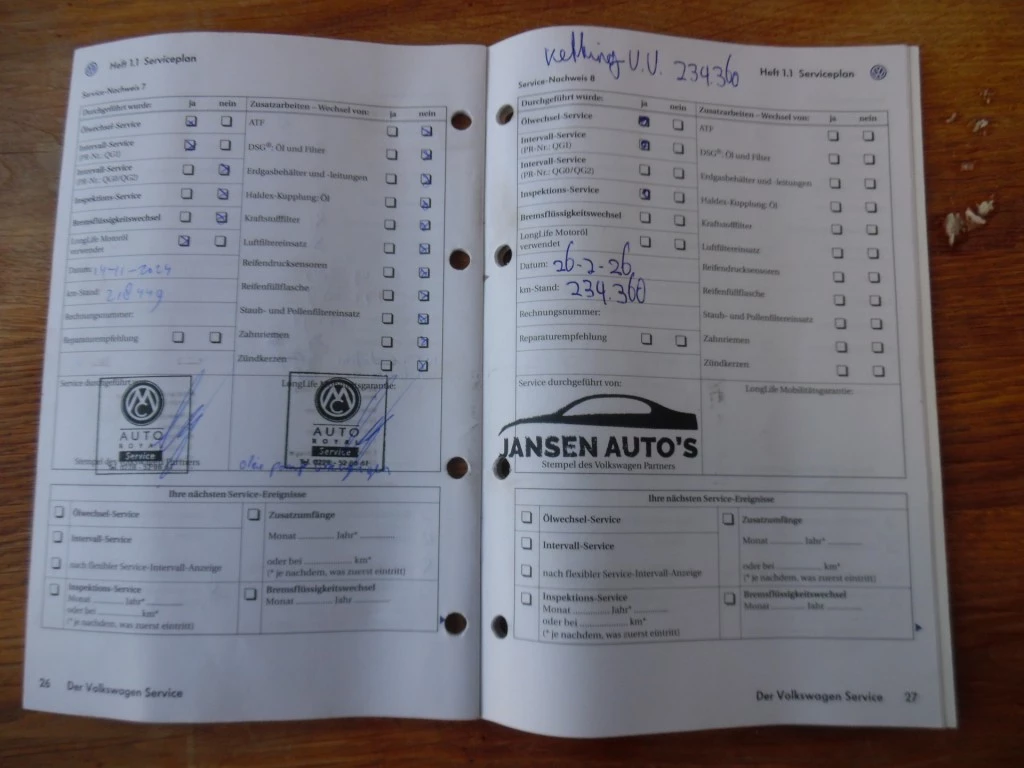 Heft 1.1 Serviceplan
Service-Nachweis 7
Durchgeführt wurde: ja nein
Ölwechsel-Service
Intervall-Service
(PR-Nr.: QG1)
Intervall-Service
(PR-Nr.: QG0/QG2)
Inspektions-Service
Bremsflüssigkeitswechsel
LongLife Motoröl
verwendet
Datum: 14-11-2024
km-Stand: 218449
Rechnungsnummer:
Reparaturempfehlung
Zusatzarbeiten – Wechsel von: ja nein
ATF
DSG®: Öl und Filter
Erdgasbehälter und -leitungen
Haldex-Kupplung: Öl
Kraftstofffilter
Luftfiltereinsatz
Reifendrucksensoren
Reifenfüllflasche
Staub- und Pollenfiltereinsatz
Zahnriemen
Zündkerzen
Service durchgeführt
AUTO
ROYAL
Service
Stempel des Volkswagen Partners
LongLife Mobilitätsgarantie:
AUTO
ROYAL
Service
Ihre nächsten Service-Ereignisse
Ölwechsel-Service
Intervall-Service
nach flexibler Service-Intervall-Anzeige
Inspektions-Service
Monat Jahr*
oder bei km*
(* je nachdem, was zuerst eintritt)
Zusatzumfänge
Monat Jahr*
oder bei km*
(* je nachdem, was zuerst eintritt)
Bremsflüssigkeitswechsel
Monat Jahr
26 Der Volkswagen Service
ketting V.V. 234.360
Heft 1.1 Serviceplan
Service-Nachweis 8
Durchgeführt wurde: ja nein
Ölwechsel-Service
Intervall-Service
(PR-Nr.: QG1)
Intervall-Service
(PR-Nr.: QG0/QG2)
Inspektions-Service
Bremsflüssigkeitswechsel
LongLife Motoröl
verwendet
Datum: 26-2-26
km-Stand: 234.360
Rechnungsnummer:
Reparaturempfehlung
Zusatzarbeiten – Wechsel von: ja nein
ATF
DSG®: Öl und Filter
Erdgasbehälter und -leitungen
Haldex-Kupplung: Öl
Kraftstofffilter
Luftfiltereinsatz
Reifendrucksensoren
Reifenfüllflasche
Staub- und Pollenfiltereinsatz
Zahnriemen
Zündkerzen
Service durchgeführt von:
JANSEN AUTO'S
Stempel des Volkswagen Partners
LongLife Mobilitätsgarantie:
Ihre nächsten Service-Ereignisse
Ölwechsel-Service
Intervall-Service
nach flexibler Service-Intervall-Anzeige
Inspektions-Service
Monat Jahr*
oder bei km*
(* je nachdem, was zuerst eintritt)
Zusatzumfänge
Monat Jahr*
oder bei km*
(* je nachdem, was zuerst eintritt)
Bremsflüssigkeitswechsel
Monat Jahr
Der Volkswagen Service 27